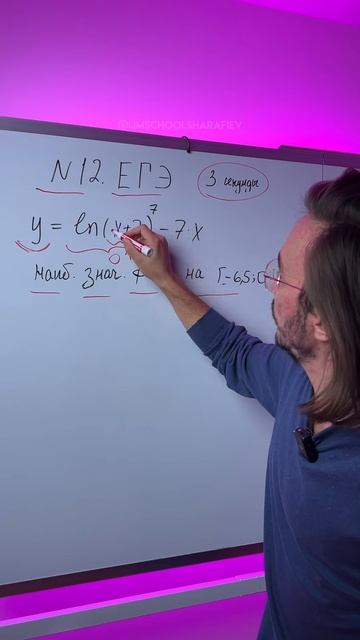 @UMSCHOOLSHARAFIEV
N12. ЕГЭ 3 секунды
y = ln(x+7)⁷ - 7·x
Наиб. знач. на [-6,5;0